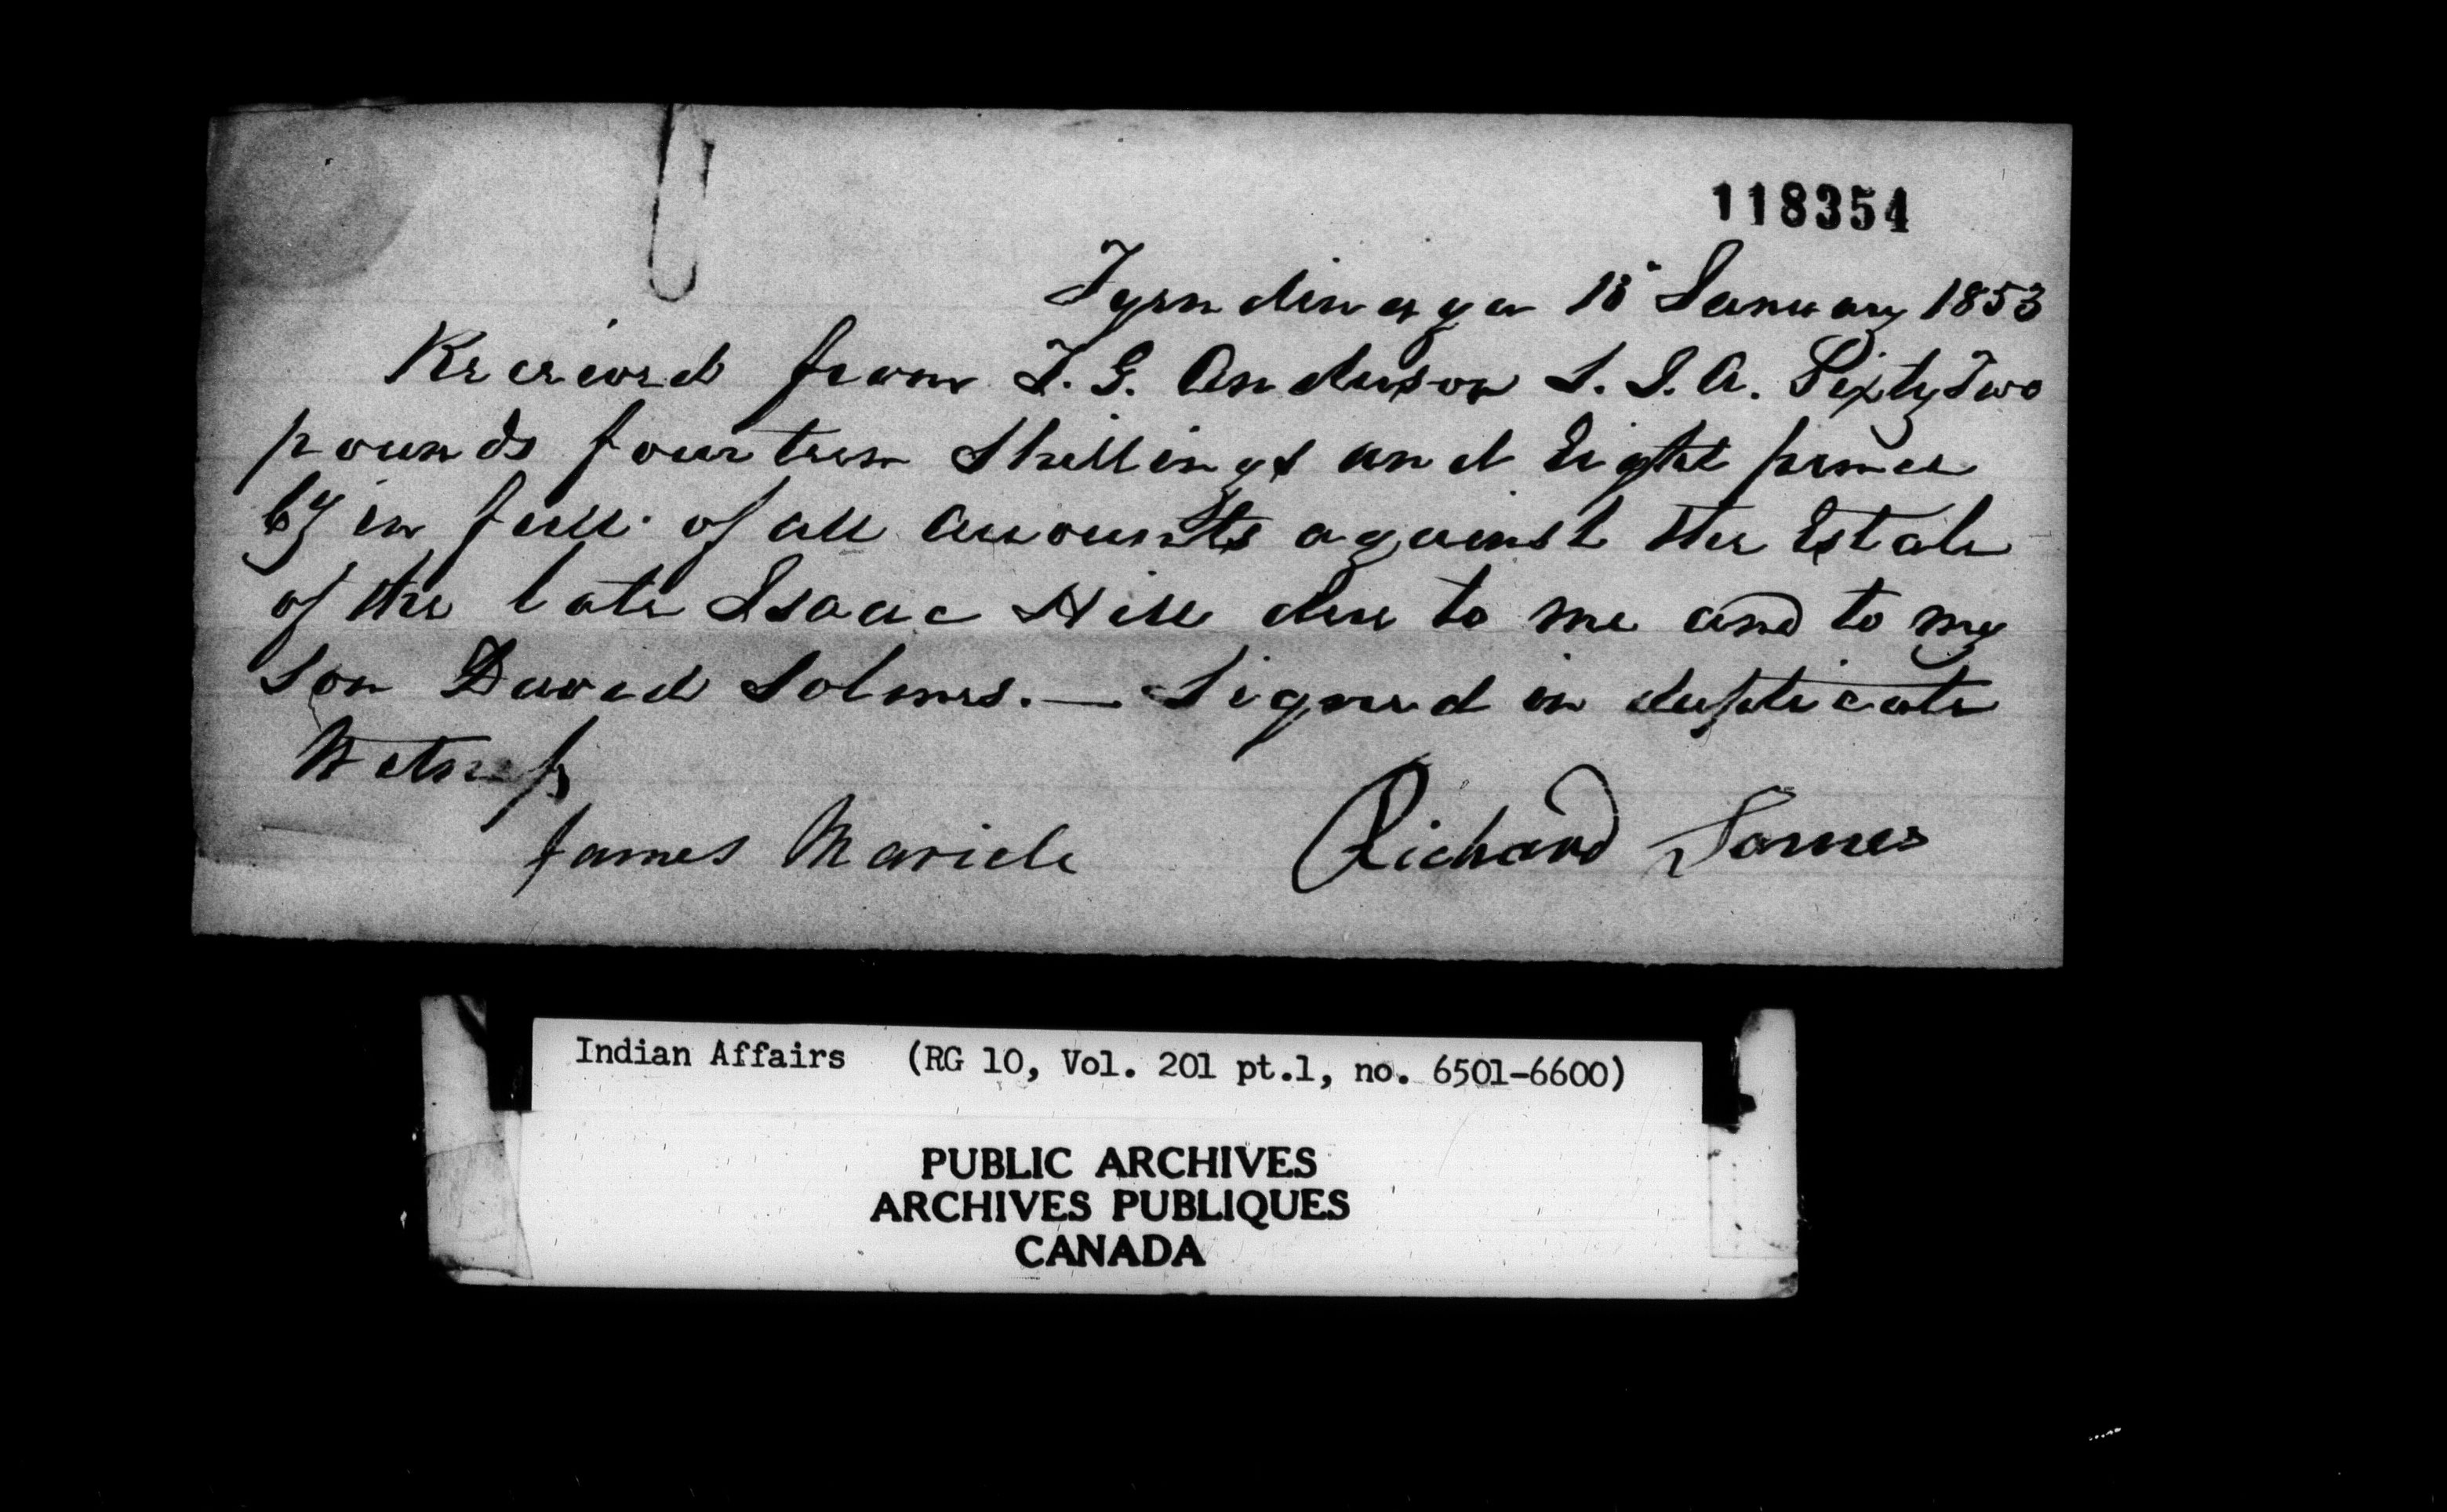 118354
Tyendinaga 18 January 1853
Received from T. G. Anderson S. I. A. Sixty Two
pounds fourteen Shillings and Eight pence
Cy in full of all accounts against the Estate
of the late Isaac Hill due to me and to my
son David Solmes. — Signed in duplicate
Witness
James Maricle
Richard
Indian Affairs (RG 10, Vol. 201 pt.1, no. 6501-6600)
PUBLIC ARCHIVES
ARCHIVES PUBLIQUES
CANADA